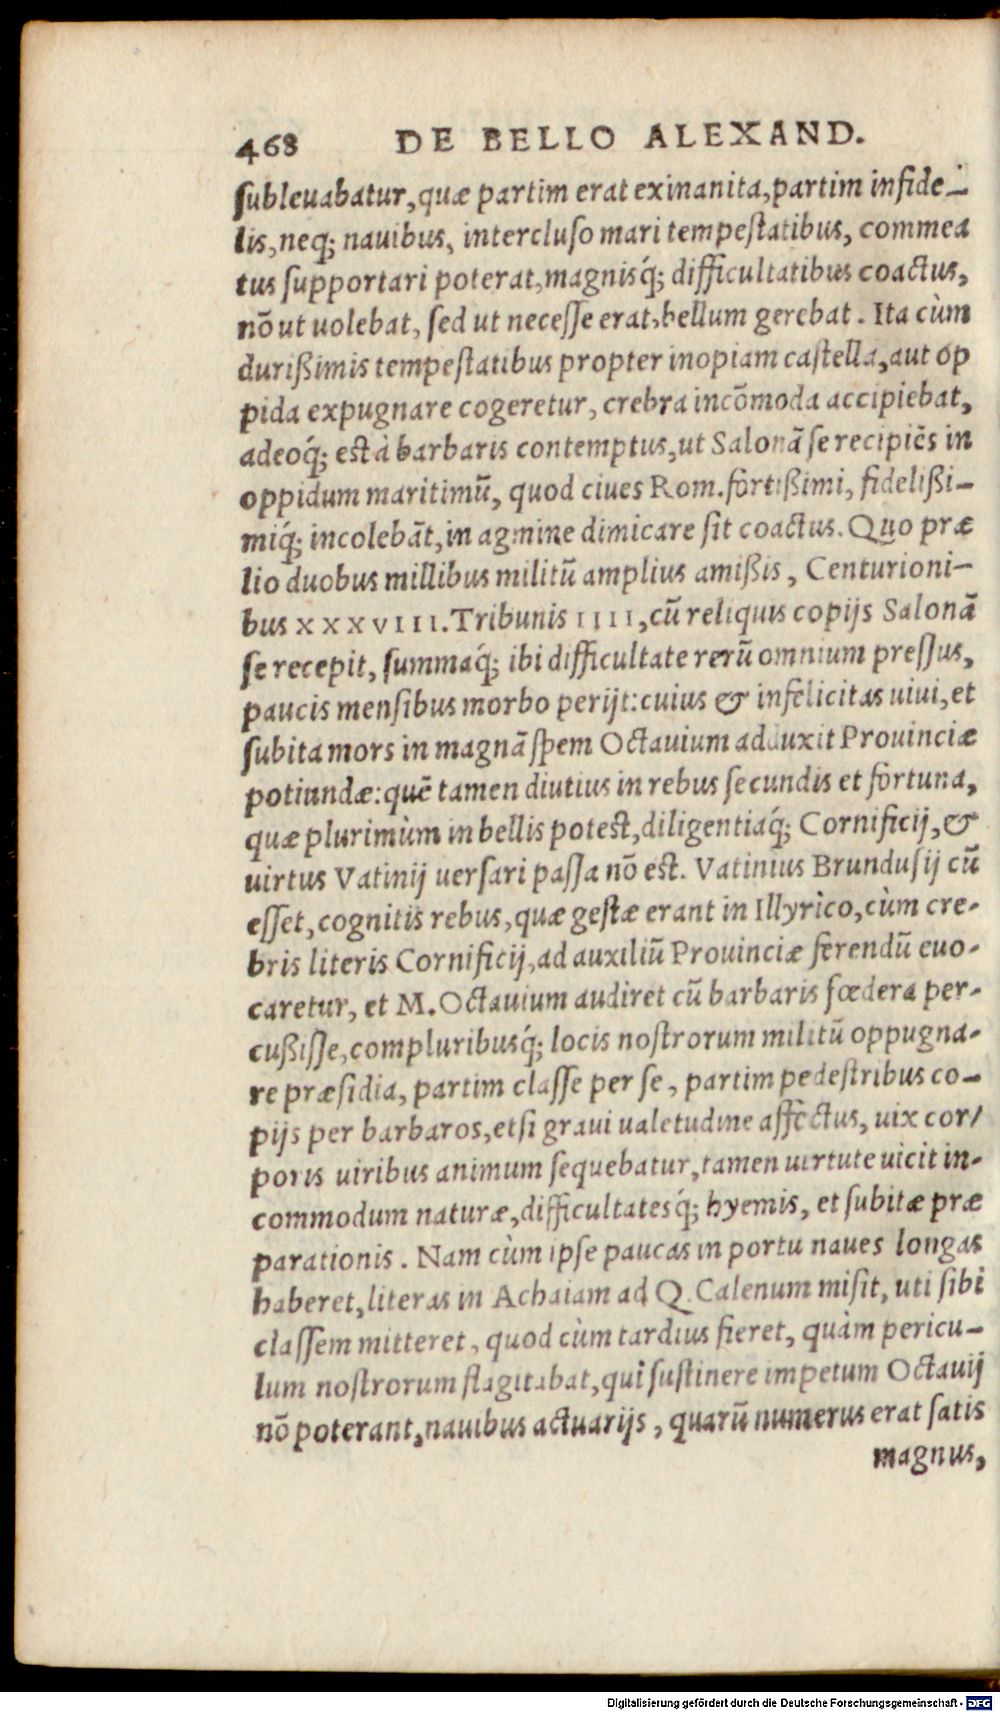 468 DE BELLO ALEXAND.
subleuabatur, quæ partim erat exinanita, partim infide-
lis, neq; nauibus, intercluso mari tempestatibus, commea
tus supportari poterat, magnisq́; difficultatibus coactus,
nõ ut uolebat, sed ut necesse erat, bellum gerebat. Ita cùm
durißimis tempestatibus propter inopiam castella, aut op
pida expugnare cogeretur, crebra incõmoda accipiebat,
adeoq́; est à barbaris contemptus, ut Salonã se recipiẽs in
oppidum maritimũ, quod ciues Rom. fortißimi, fidelißi-
miq́; incolebãt, in agmine dimicare sit coactus. Quo præ
lio duobus millibus militũ amplius amißis, Centurioni-
bus XXXVIII. Tribunis IIII, cũ reliquis copijs Salonã
se recepit, summaq́; ibi difficultate rerũ omnium pressus,
paucis mensibus morbo perijt: cuius & infelicitas uiui, et
subita mors in magnã spem Octauium adduxit Prouinciæ
potiundæ: quẽ tamen diutius in rebus secundis et fortuna,
quæ plurimùm in bellis potest, diligentiaq́; Cornificij, &
uirtus Vatinij uersari passa nõ est. Vatinius Brundusij cũ
esset, cognitis rebus, quæ gestæ erant in Illyrico, cùm cre-
bris literis Cornificij, ad auxiliũ Prouinciæ ferendũ euo-
caretur, et M. Octauium audiret cũ barbaris fœdera per-
cußisse, compluribusq́; locis nostrorum militũ oppugna-
re præsidia, partim classe per se, partim pedestribus co-
pijs per barbaros, etsi graui ualetudine affectus, uix cor/
poris uiribus animum sequebatur, tamen uirtute uicit in-
commodum naturæ, difficultatesq́; hyemis, et subitæ præ
parationis. Nam cùm ipse paucas in portu naues longas
haberet, literas in Achaiam ad Q. Calenum misit, uti sibi
classem mitteret, quod cùm tardius fieret, quàm pericu-
lum nostrorum flagitabat, qui sustinere impetum Octauij
nõ poterant, nauibus actuarijs, quarũ numerus erat satis
magnus,
Digitalisierung gefördert durch die Deutsche Forschungsgemeinschaft - DFG